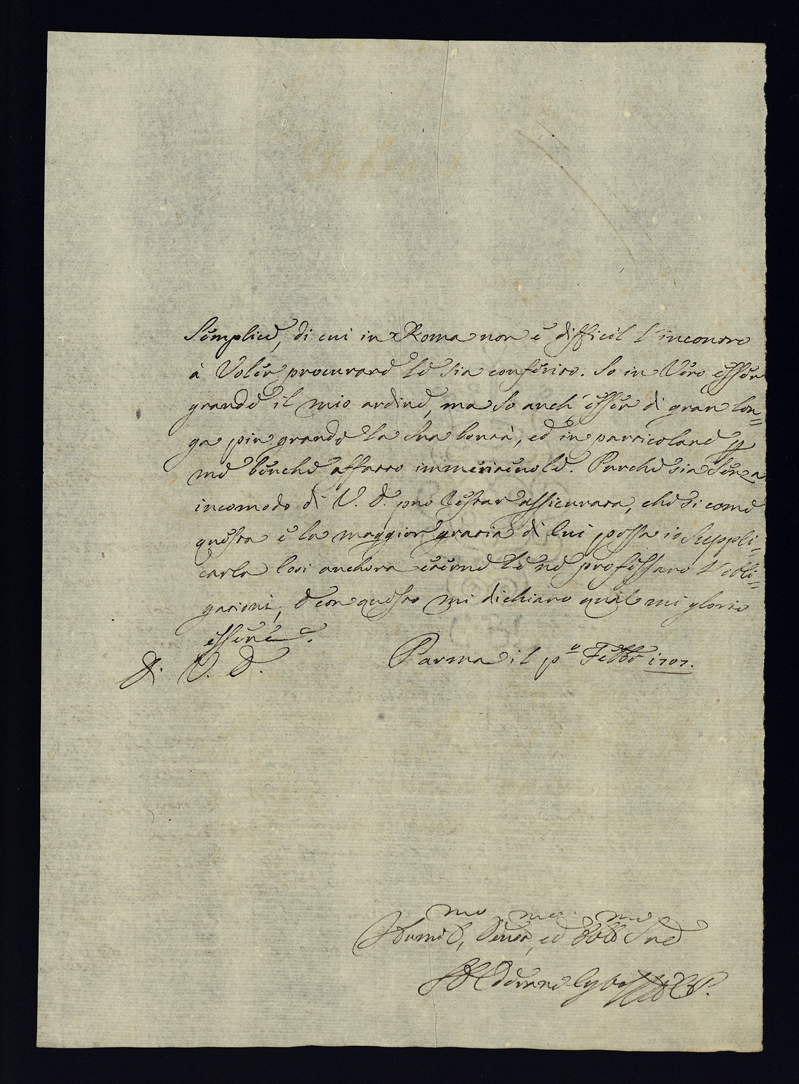 Semplice, di cui in Roma non è difficil l'incontro
à Voler procurare le sia conferito. So in Vero esser
grande il mio ardire, ma so anch'esser di gran lon=
ga piu grande la sua bontà, ed in particolare p
me benche affatto immeritevole. Purche sia senza
incomodo di V. S. puo restar assicurata, che si come
questa è la maggior gratia di lui possa io suppli=
carla Cosi anchora eterne le ne professaro l'obli=
gationi, e con questo mi dichiaro qual mi glorio
essere
D. V. S.
Parma il p.o Febb.o 1707.
Humil.mo, Dever.mo, ed Obb.mo Ser.e